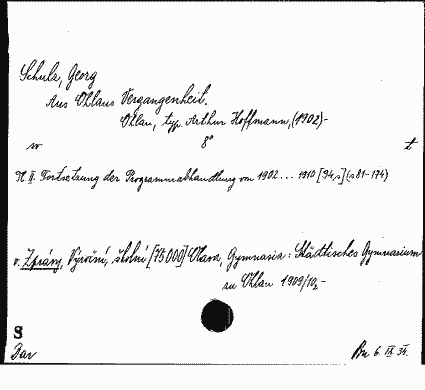 Schulz, Georg
Aus Ohlaus Vergangenheit.
Ohlau, typ. Arthur Hoffmann, (1902)-
8° t
N. II. Fortsetzung der Programmabhandlung von 1902 ... 1910 [94, s] (s 81-174)
v. Zprávy, Výroční, školní [75000] Olava, Gymnasia: Städtisches Gymnasium
zu Ohlau 1909/10,-
S
Dar 6. IX. 34.